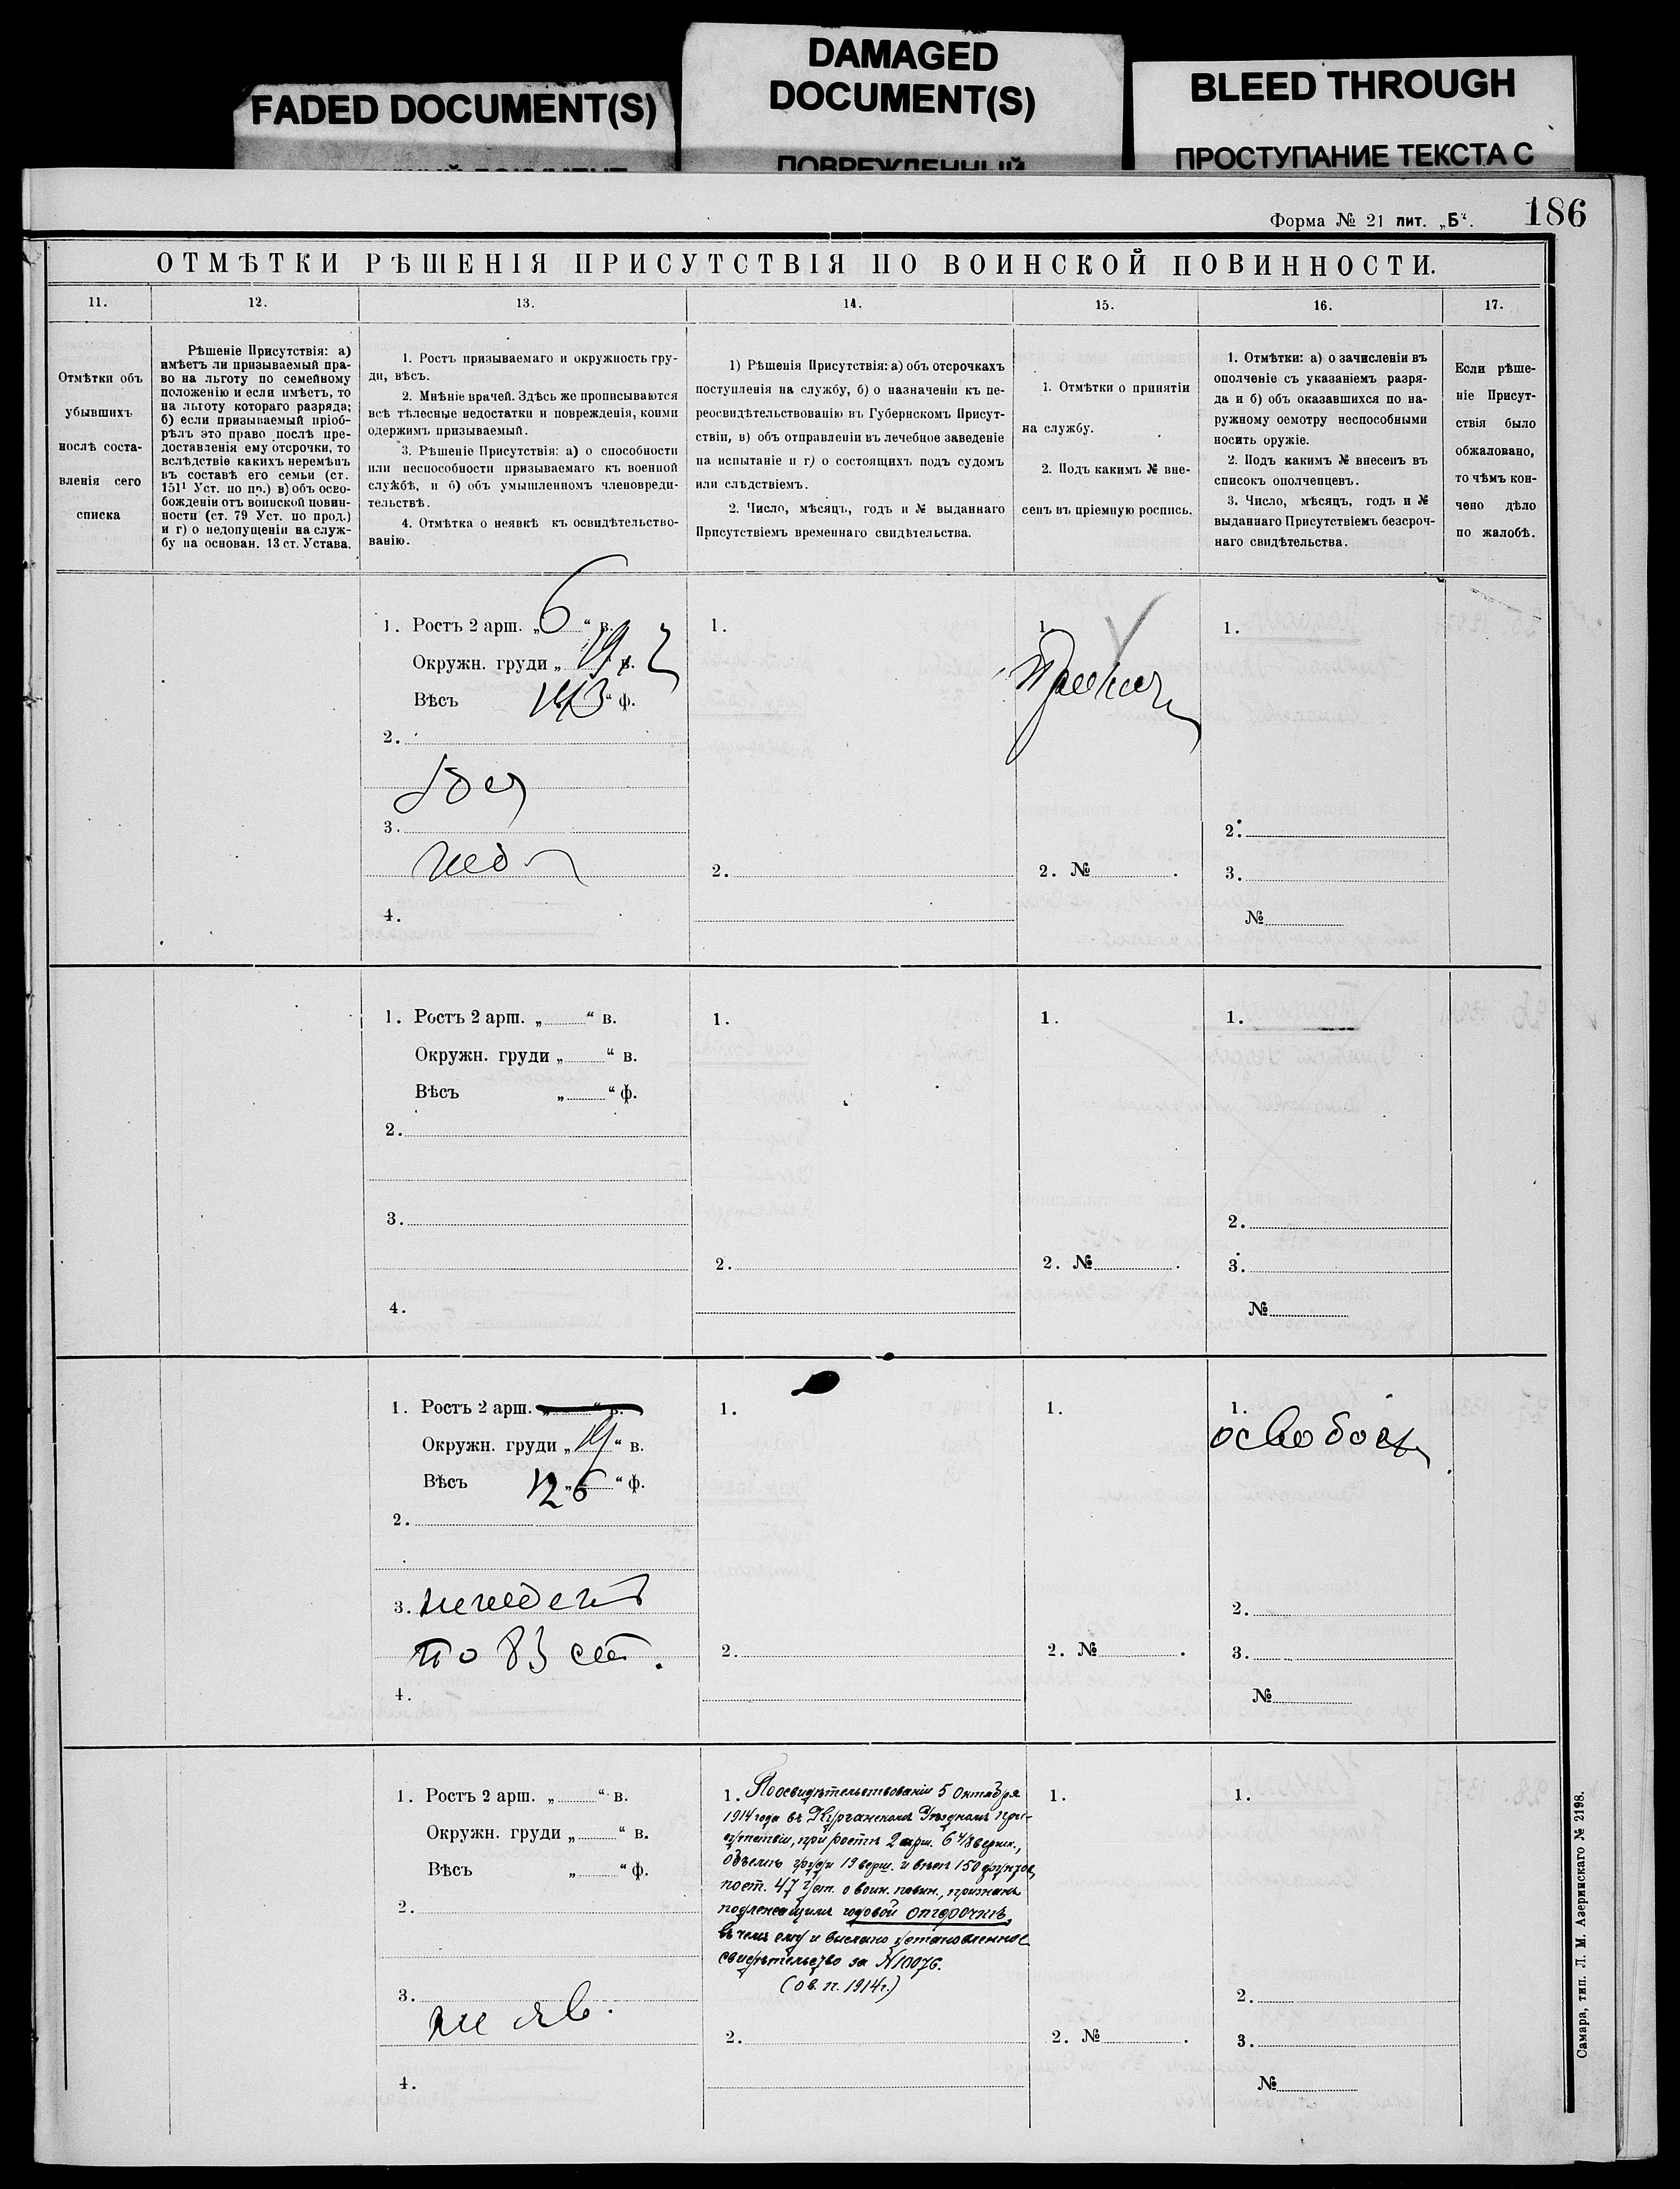 FADED DOCUMENT(S)
DAMAGED
DOCUMENT(S)
ПОВРЕЖДЕННЫЙ
BLEED THROUGH
ПРОСТУПАНИЕ ТЕКСТА С
Форма № 21 лит. „Б“.
186
ОТМѢТКИ РѢШЕНІЯ ПРИСУТСТВІЯ ПО ВОИНСКОЙ ПОВИННОСТИ.
11.
12.
13.
14.
15.
16.
17.
Отмѣтки объ
убывшихъ
послѣ соста-
вленія сего
списка
Рѣшеніе Присутствія: а)
имѣетъ ли призываемый пра-
во на льготу по семейному
положенію и если имѣетъ, то
на льготу котораго разряда;
б) если призываемый пріоб-
рѣлъ это право послѣ пре-
доставленія ему отсрочки, то
вслѣдствіе какихъ перемѣнъ
въ составѣ его семьи (ст.
151¹ Уст. по пр.) в) объ осво-
божденіи отъ воинской повин-
ности (ст. 79 Уст. по прод.)
и г) о недопущеніи на служ-
бу на основан. 13 ст. Устава.
1. Ростъ призываемаго и окружность гру-
ди, вѣсъ.
2. Мнѣніе врачей. Здѣсь же прописываются
всѣ тѣлесные недостатки и поврежденія, коими
одержимъ призываемый.
3. Рѣшеніе Присутствія: а) о способности
или неспособности призываемаго къ военной
службѣ, и б) объ умышленномъ членовреди-
тельствѣ.
4. Отмѣтка о неявкѣ къ освидѣтельство-
ванію.
1) Рѣшенія Присутствія: а) объ отсрочкахъ
поступленія на службу, б) о назначеніи къ пе-
реосвидѣтельствованію въ Губернскомъ Присут-
ствіи, в) объ отправленіи въ лечебное заведеніе
на испытаніе и г) о состоящихъ подъ судомъ
или слѣдствіемъ.
2. Число, мѣсяцъ, годъ и № выданнаго
Присутствіемъ временнаго свидѣтельства.
1. Отмѣтки о принятіи
на службу.
2. Подъ какимъ № вне-
сенъ въ пріемную роспись.
1. Отмѣтки: а) о зачисленіи въ
ополченіе съ указаніемъ разря-
да и б) объ оказавшихся по на-
ружному осмотру неспособными
носить оружіе.
2. Подъ какимъ № внесенъ въ
списокъ ополченцевъ.
3. Число, мѣсяцъ, годъ и №
выданнаго Присутствіемъ безсроч-
наго свидѣтельства.
Если рѣше-
ніе Присут-
ствія было
обжаловано,
то чѣмъ кон-
чено дѣло
по жалобѣ.
1. Ростъ 2 арш. „6“ в.
Окружн. груди „19“ в.
Вѣсъ 143“ ф.
2.
3.
4.
1.
2.
1.
2. №
1.
2.
3.
№
1. Ростъ 2 арш. „ “ в.
Окружн. груди „ “ в.
Вѣсъ „ “ ф.
2.
3.
4.
1.
2.
1.
2. №
1.
2.
3.
№
1. Ростъ 2 арш. „ “ в.
Окружн. груди „19“ в.
Вѣсъ „126“ ф.
2.
3.
по 83 ст.
4.
1.
2.
1.
2. №
1.
освобожд
2.
3.
№
1. Ростъ 2 арш. „ “ в.
Окружн. груди „ “ в.
Вѣсъ „ “ ф.
2.
3.
не яв.
4.
1. По освидѣтельствованіи 5 Октября
1914 года въ Курганскомъ Уѣздномъ при-
сутствіи, при ростѣ 2 арш. 6 4/8 вершк.,
объемѣ груди 19 верш. и вѣсѣ 150 фунтовъ,
по ст. 47 Уст. о воин. повин., признанъ
подлежащимъ годовой отсрочкѣ,
въ чемъ ему и выслано установленное
свидѣтельство за № 10076.
(о в. п. 1914 г.)
2.
1.
2. №
1.
2.
3.
№
Самара, тип. Л. М. Азеринскаго № 2198.